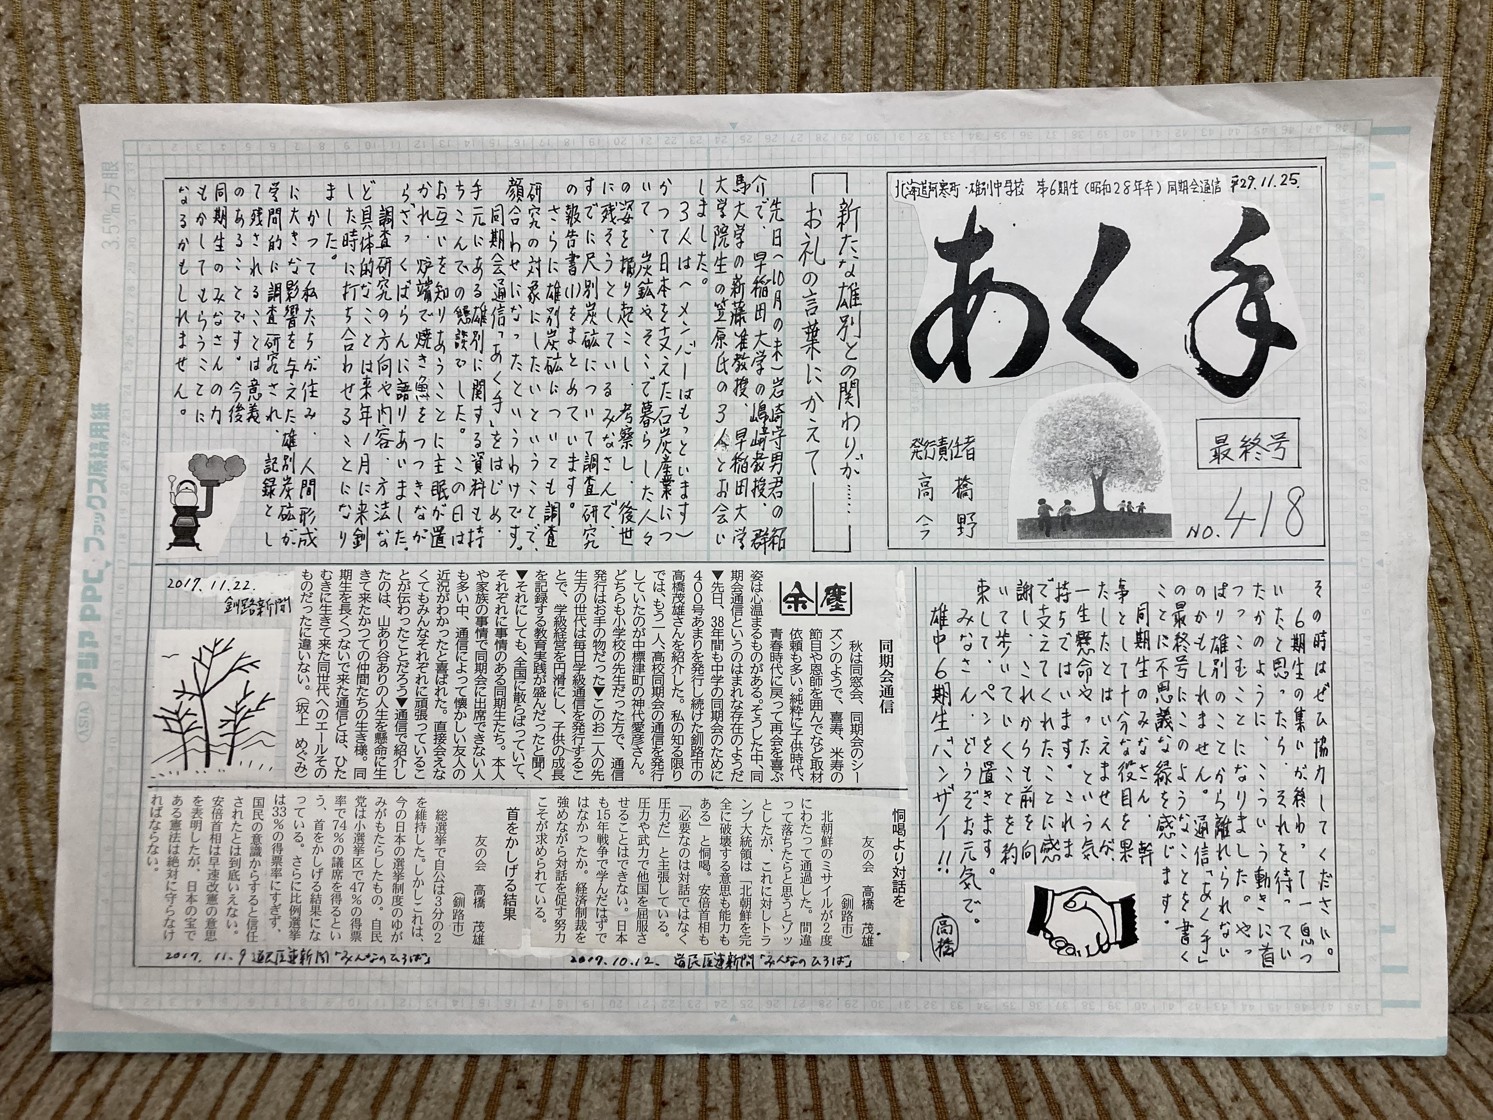 北海道阿寒町・雄別中学校 第6期生(昭和28年卒)同期会通信 平29.11.25.
あく手
最終号
NO.418
発行責任者
高橋
今野
新たな雄別との関わりが……
お礼の言葉にかえて
先日(10月の末)岩崎守男君の紹
介で、早稲田大学の嶋﨑教授、群
馬大学の新藤准教授、早稲田大学
大学院生の笠原氏の3人とお会い
しました。
3人は(メンバーはもっといます)
かつて日本を支えた石炭産業につ
いて、炭鉱やそこで暮らした人々
の姿を掘り起こし、考察し、後世
に残そうとしているみなさんで、
すでに尺別炭砿について調査研究
の報告書(1)をまとめています。
さらに雄別炭砿についても調査
研究の対象にしたいということで、
顔合わせになったというわけです。
同期会通信「あく手」をはじめ、
手元にある雄別に関する資料も持
ちこんでの懇談でした。この日は
お互いを知りあうことに主眼が置
かれ、炉端で焼き魚をつつきなが
ら、ざっくばらんに語りあいました。
調査研究の方向や内容、方法な
ど具体的なことは来年1月に来釧
した時に打ち合わせることになり
ました。
かつて私たちが住み、人間形成
に大きな影響を与えた雄別炭砿が
学問的に調査研究され、記録とし
て残されることは意義
のあることです。今後
同期生のみなさんの力
もかしてもらうことに
なるかもしれません。
その時はぜひ協力してください。
6期生の集いが終わって一息つ
いたと思ったら、それを待ってい
たかのように、こういう動きに首
つっこむことになりました。やっ
ぱり雄別のことから離れられない
のかもしれません。通信「あく手」
の最終号にこのようなことを書く
ことに不思議な縁を感じます。
同期生のみなさん、幹
事として十分な役目を果
たしたとはいえませんが、
一生懸命やったという気
持ちではいます。これま
で支えてくれたことに感
謝し、これからも前を向
いて歩いていくことを約
束して、ペンを置きます。
みなさん、どうぞお元気で。
雄中6期生バンザイ!!
高橋
余塵
同期会通信
秋は同窓会、同期会のシー
ズンのようで、喜寿、米寿の
節目や恩師を囲んでなど取材
依頼も多い。純粋に子供時代、
青春時代に戻って再会を喜ぶ
姿は心温まるものがある。そうした中、同
期会通信というのはまれな存在のようだ
▼先日、38年間も中学の同期会のために
400号あまりを発行し続けた釧路市の
高橋茂雄さんを紹介した。私の知る限り
では、もう一人、高校同期会の通信を発行
していたのが中標津町の神代愛彦さん。
どちらも小学校の先生だった方で、通信
発行はお手の物だった▼このお二人の先
生方の世代は毎日学級通信を発行するこ
とで、学級経営を円滑にし、子供の成長
を記録する教育実践が盛んだったと聞く
▼それにしても、全国に散らばっていて、
それぞれに事情のある同期生たち。本人
や家族の事情で同期会に出席できない人
も多い中、通信によって懐かしい友人の
近況がわかったと喜ばれた。直接会えな
くてもみんなそれぞれに頑張っているこ
とが伝わったことだろう▼通信で紹介し
たのは、山あり谷ありの人生を懸命に生
きて来たかつての仲間たちの生き様。同
期生を長くつないで来た通信とは、ひた
むきに生きて来た同世代へのエールその
ものだったに違いない。(坂上 めぐみ)
2017.11.22.
釧路新聞
恫喝より対話を
友の会 高橋 茂雄
(釧路市)
北朝鮮のミサイルが2度
にわたって通過した。間違
って落ちたらと思うとゾッ
としたが、これに対しトラ
ンプ大統領は「北朝鮮を完
全に破壊する意思も能力も
ある」と恫喝。安倍首相も
「必要なのは対話ではなく
圧力だ」と主張している。
圧力や武力で他国を屈服さ
せることはできない。日本
も15年戦争で学んだはずで
はなかったか。経済制裁を
強めながら対話を促す努力
こそが求められている。
2017.10.12. 道民医連新聞「みんなのひろば」
首をかしげる結果
友の会 高橋 茂雄
(釧路市)
総選挙で自公は3分の2
を維持した。しかしこれは、
今の日本の選挙制度のゆが
みがもたらしたもの。自民
党は小選挙区で47%の得票
率で74%の議席を得るとい
う、首をかしげる結果にな
っている。さらに比例選挙
は33%の得票率にすぎず、
国民の意識からすると信任
されたとは到底いえない。
安倍首相は早速改憲の意思
を表明したが、日本の宝で
ある憲法は絶対に守らなけ
ればならない。
2017.11.9 道民医連新聞「みんなのひろば」
3.5mm方眼
アジア PPC、ファックス原稿用紙
ASIA